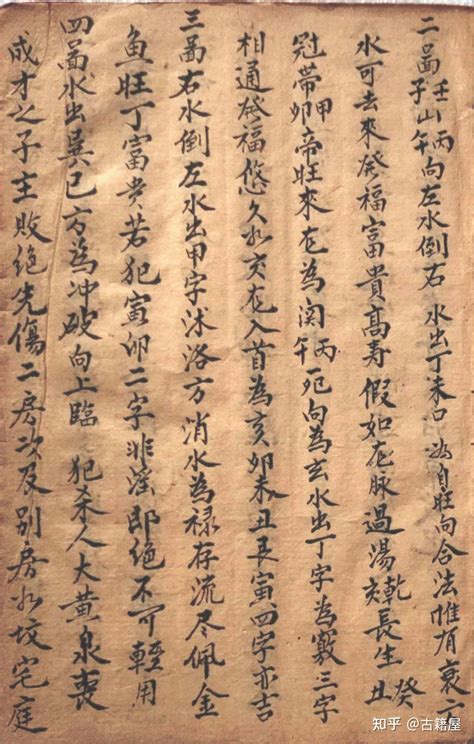 二啚壬子山丙午向左水倒右 水出丁未口 為自旺向合法惟有衰
水可去來發福富貴髙壽假如龙脉過湯乾亥長生癸丑
冠帶甲卯帝旺來龙為関丙午死向為玄水出丁字為竅三字
相通發福悠久如亥龙入首為亥卯未丑艮寅四字亦吉
三啚右水倒左水出甲字沭洛方消水為禄存流尽佩金
魚旺丁富貴若犯寅卯二字非滛即绝不可輕用
四啚水出巽巳方為冲破向上臨 犯杀人大黄泉丧
成才之子主敗绝先傷二房次及别房如坟宅庭
知乎 @古籍屋